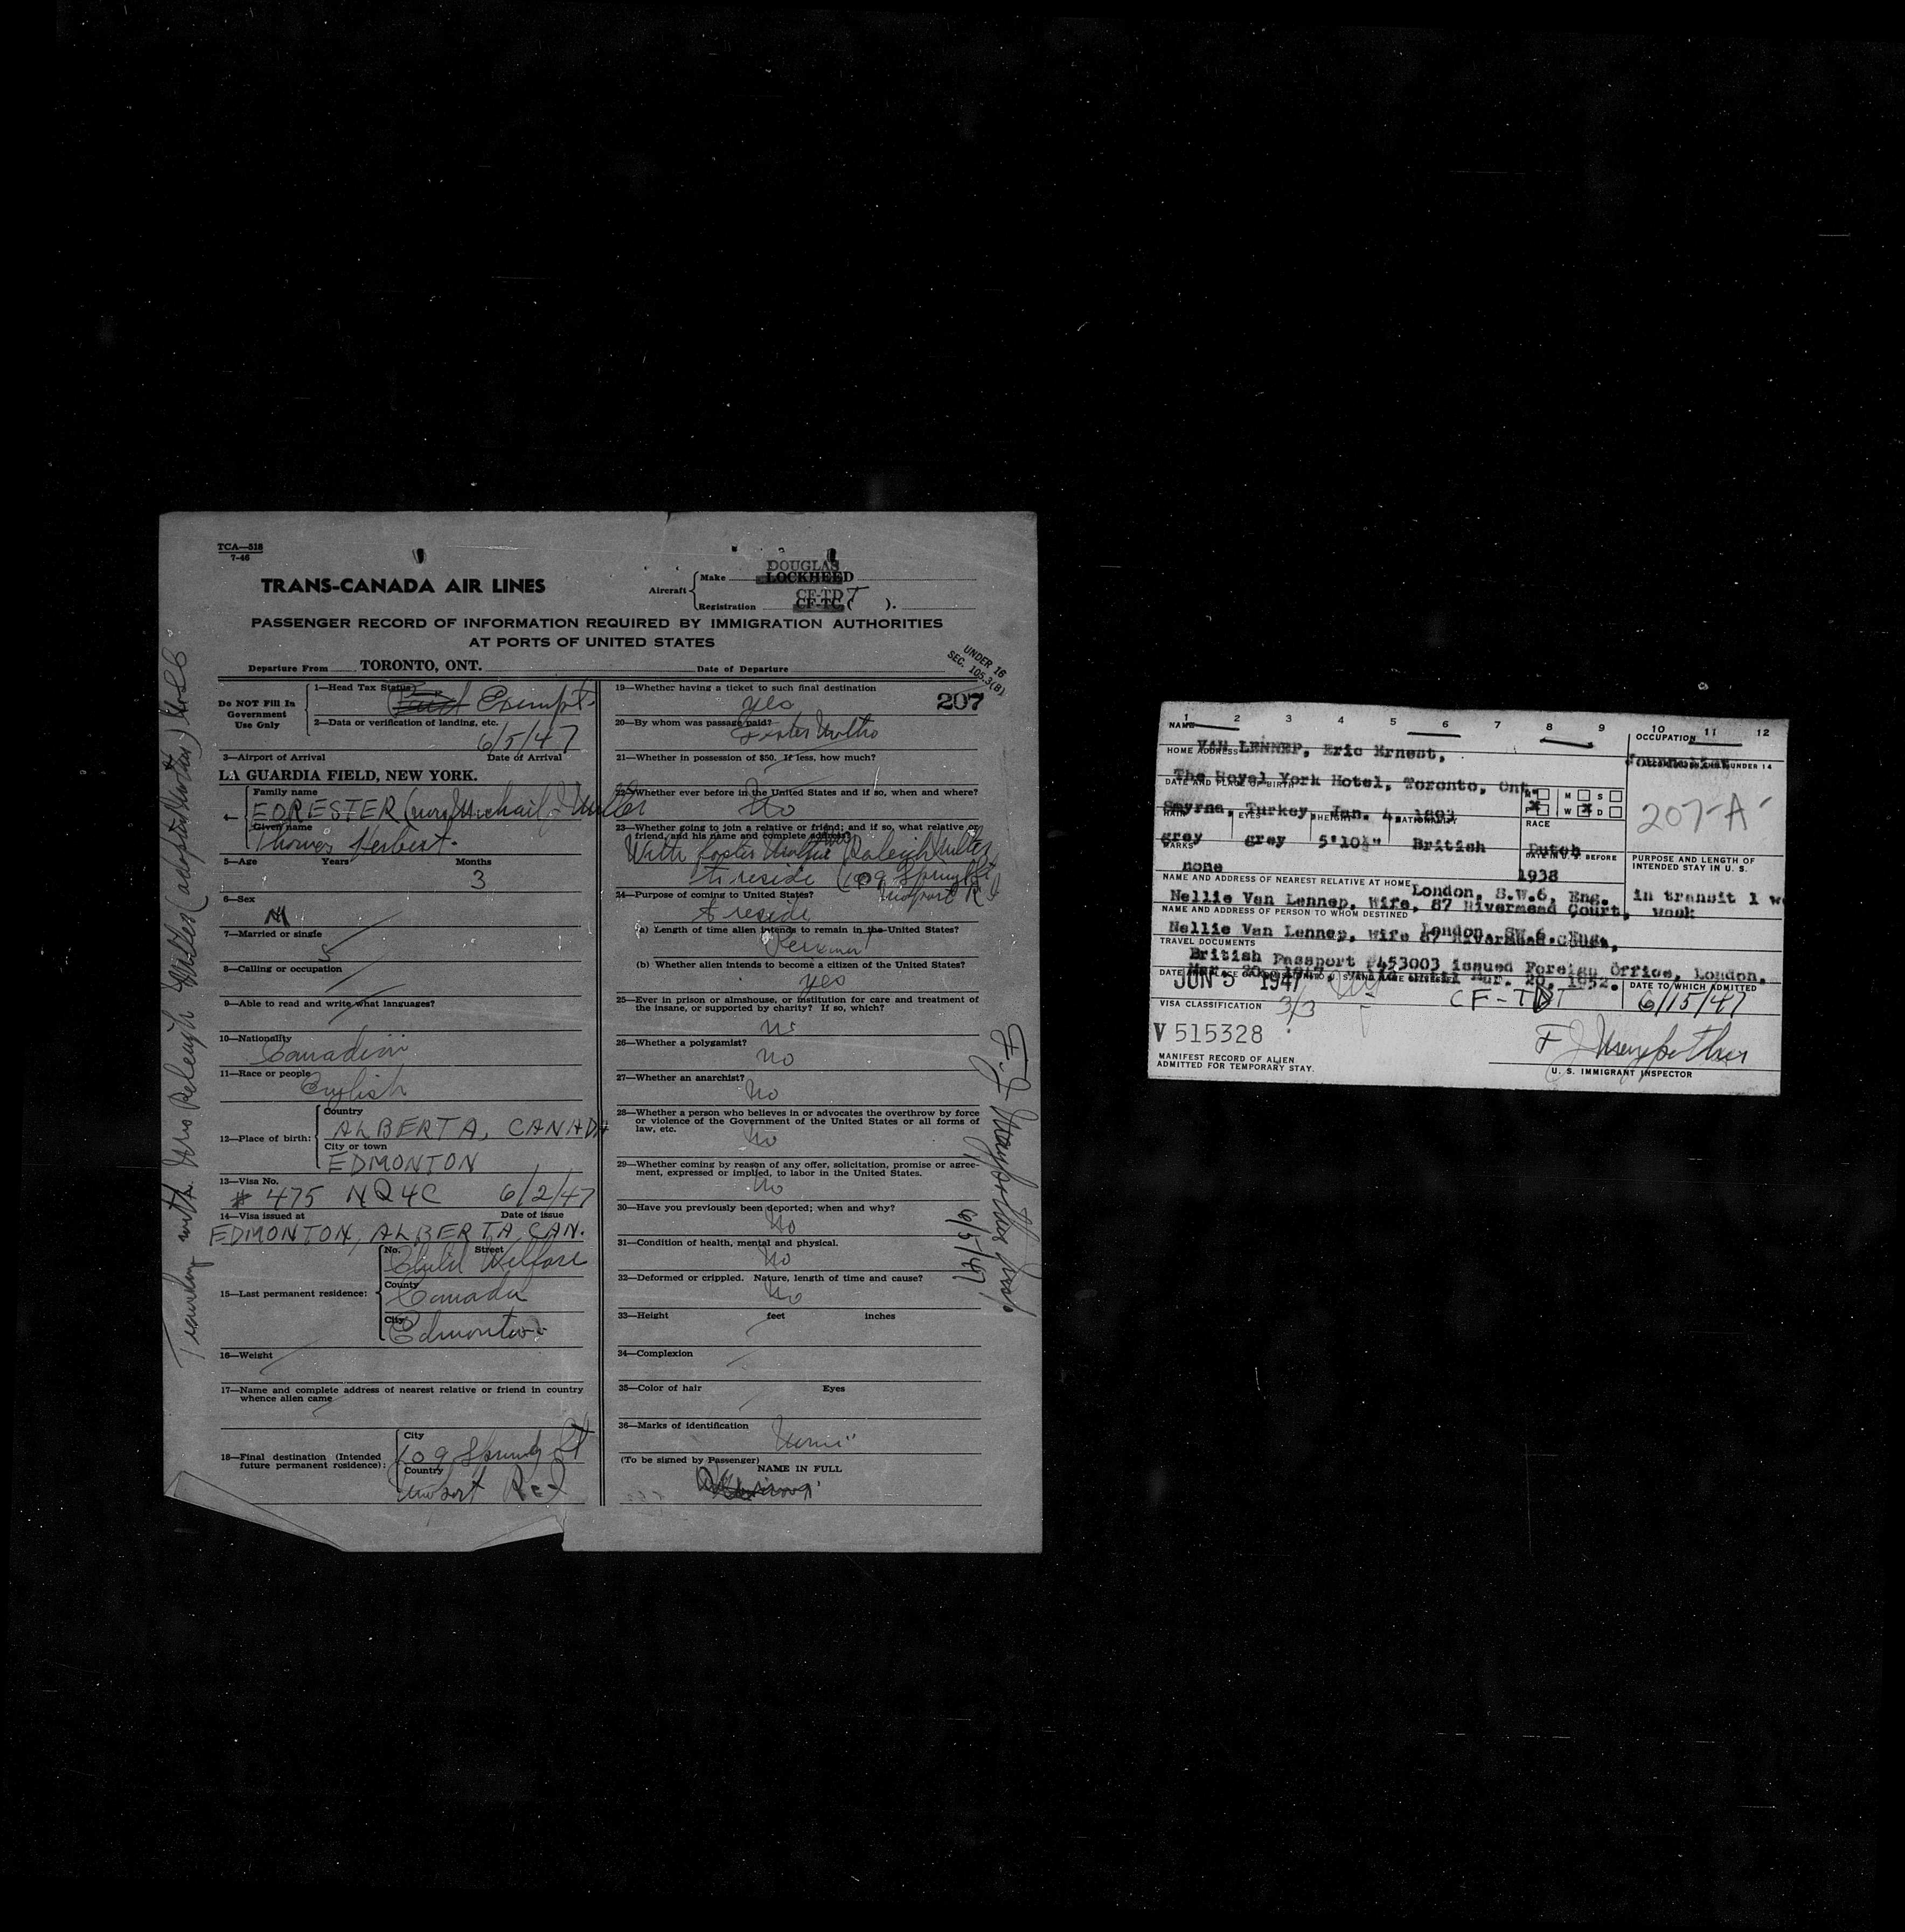 TCA—518
7-46
TRANS-CANADA AIR LINES
Aircraft
Make DOUGLAS LOCKHEED
Registration CF-TDT CF-TC ( ).
PASSENGER RECORD OF INFORMATION REQUIRED BY IMMIGRATION AUTHORITIES
AT PORTS OF UNITED STATES
Departure From TORONTO, ONT. Date of Departure
UNDER 16
SEC. 105.3(B)
207
Do NOT Fill In
Government
Use Only
1—Head Tax Status Exempt
2—Data or verification of landing, etc.
6/5/47
3—Airport of Arrival Date of Arrival
LA GUARDIA FIELD, NEW YORK.
4— Family name
FORESTER (now Michail J Miller
Given name
Thomas Herbert.
5—Age Years Months
3
6—Sex
M
7—Married or single
S
8—Calling or occupation
9—Able to read and write what languages?
10—Nationality
Canadian
11—Race or people
English
12—Place of birth:
Country
ALBERTA, CANADA
City or town
EDMONTON
13—Visa No. Date of issue
# 475 NQ4C 6/2/47
14—Visa issued at
EDMONTON, ALBERTA, CAN.
15—Last permanent residence:
No. Street
Child Welfare
County
Canada
City
Edmonton
16—Weight
17—Name and complete address of nearest relative or friend in country
whence alien came
18—Final destination (Intended
future permanent residence):
City
109 Spring St
Country
Newport R I
19—Whether having a ticket to such final destination
yes
20—By whom was passage paid?
Foster Mother
21—Whether in possession of $50. If less, how much?
22—Whether ever before in the United States and if so, when and where?
No
23—Whether going to join a relative or friend; and if so, what relative or
friend, and his name and complete address?
With foster Mother Mrs Raleigh Miller
to reside (109 Spring St
Newport R I
24—Purpose of coming to United States?
to reside
(a) Length of time alien intends to remain in the United States?
Permanent
(b) Whether alien intends to become a citizen of the United States?
yes
25—Ever in prison or almshouse, or institution for care and treatment of
the insane, or supported by charity? If so, which?
no
26—Whether a polygamist?
no
27—Whether an anarchist?
No
28—Whether a person who believes in or advocates the overthrow by force
or violence of the Government of the United States or all forms of
law, etc.
No
29—Whether coming by reason of any offer, solicitation, promise or agree-
ment, expressed or implied, to labor in the United States.
No
30—Have you previously been deported; when and why?
No
31—Condition of health, mental and physical.
No
32—Deformed or crippled. Nature, length of time and cause?
No
33—Height feet inches
34—Complexion
35—Color of hair Eyes
36—Marks of identification
None
(To be signed by Passenger)
NAME IN FULL
Traveling with Mrs Raleigh Miller (adopting Mother)
6/5/47
1 2 3 4 5 6 7 8 9 10 11 12
NAME
VAN LENNEP, Eric Ernest,
OCCUPATION
Journalist
UNDER 14
HOME ADDRESS
The Royal York Hotel, Toronto, Ont.
DATE AND PLACE OF BIRTH
Smyrna, Turkey, Jan. 4, 1893
M S
W D
207-A
HAIR EYES HEIGHT NATIONALITY RACE
grey grey 5'10½" British Dutch
MARKS
none
DATE IN U. S. BEFORE
1938
PURPOSE AND LENGTH OF
INTENDED STAY IN U. S.
in transit 1 w
week
NAME AND ADDRESS OF NEAREST RELATIVE AT HOME
London, S.W.6, Eng.
Nellie Van Lennep, Wife, 87 Rivermead Court,
NAME AND ADDRESS OF PERSON TO WHOM DESTINED
London, SW.6. Eng.
Nellie Van Lennep, Wife 87 Rivermead Court,
TRAVEL DOCUMENTS
British Passport #453003 issued Foreign Office, London,
Mar. 20, 1947, valid until Mar. 20, 1952.
JUN 5 1947
CF-TDT
DATE TO WHICH ADMITTED
6/15/47
VISA CLASSIFICATION 3/3
V 515328
MANIFEST RECORD OF ALIEN
ADMITTED FOR TEMPORARY STAY.
U. S. IMMIGRANT INSPECTOR